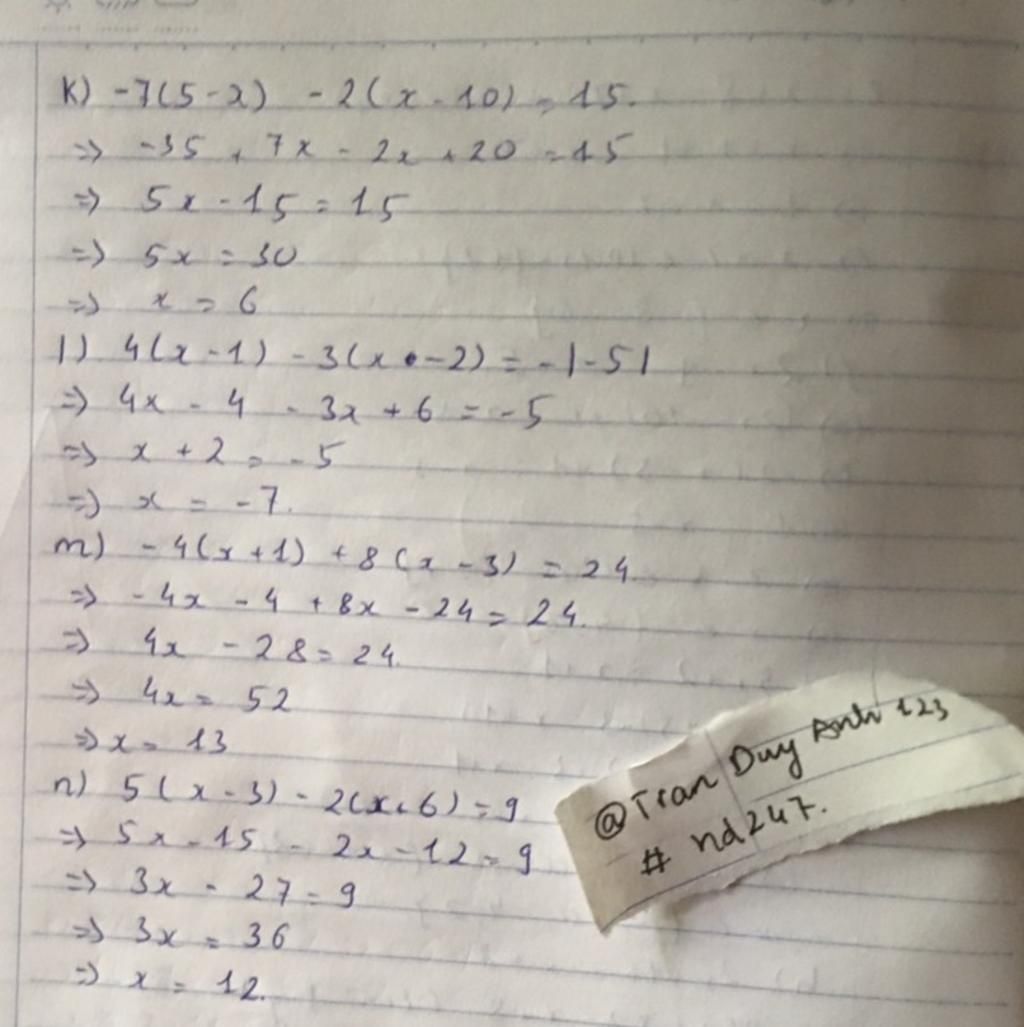 K) -7(5-x) - 2(x-10) = 15.
=> -35 + 7x - 2x + 20 = 15
=> 5x - 15 = 15
=> 5x = 30
=> x = 6
l) 4(x-1) - 3(x-2) = -|-5|
=> 4x - 4 - 3x + 6 = -5
=> x + 2 = -5
=> x = -7.
m) -4(x+1) + 8(x-3) = 24
=> -4x - 4 + 8x - 24 = 24.
=> 4x - 28 = 24.
=> 4x = 52
=> x = 13
n) 5(x-3) - 2(x+6) = 9
=> 5x - 15 - 2x - 12 = 9
=> 3x - 27 = 9
=> 3x = 36
=> x = 12.
@Tran Duy Anh 123
# nd247.